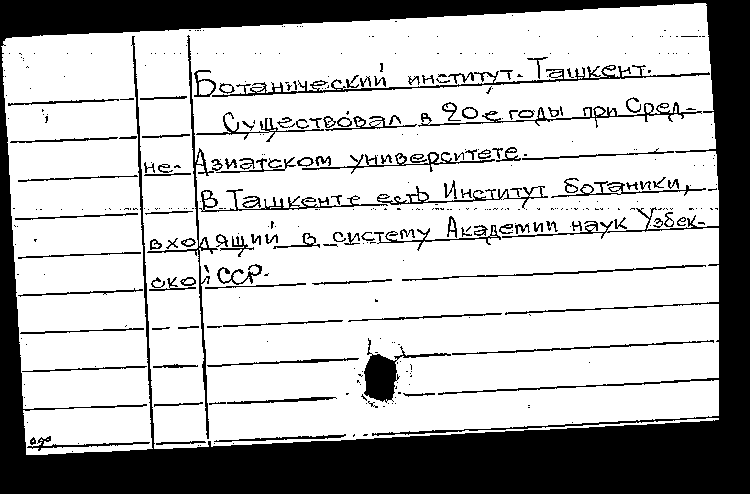 Ботанический институт. Ташкент.
Существовал в 20е годы при Сред-
не-Азиатском университете.
В Ташкенте есть Институт ботаники,
входящий в систему Академии наук Узбек-
ской ССР.